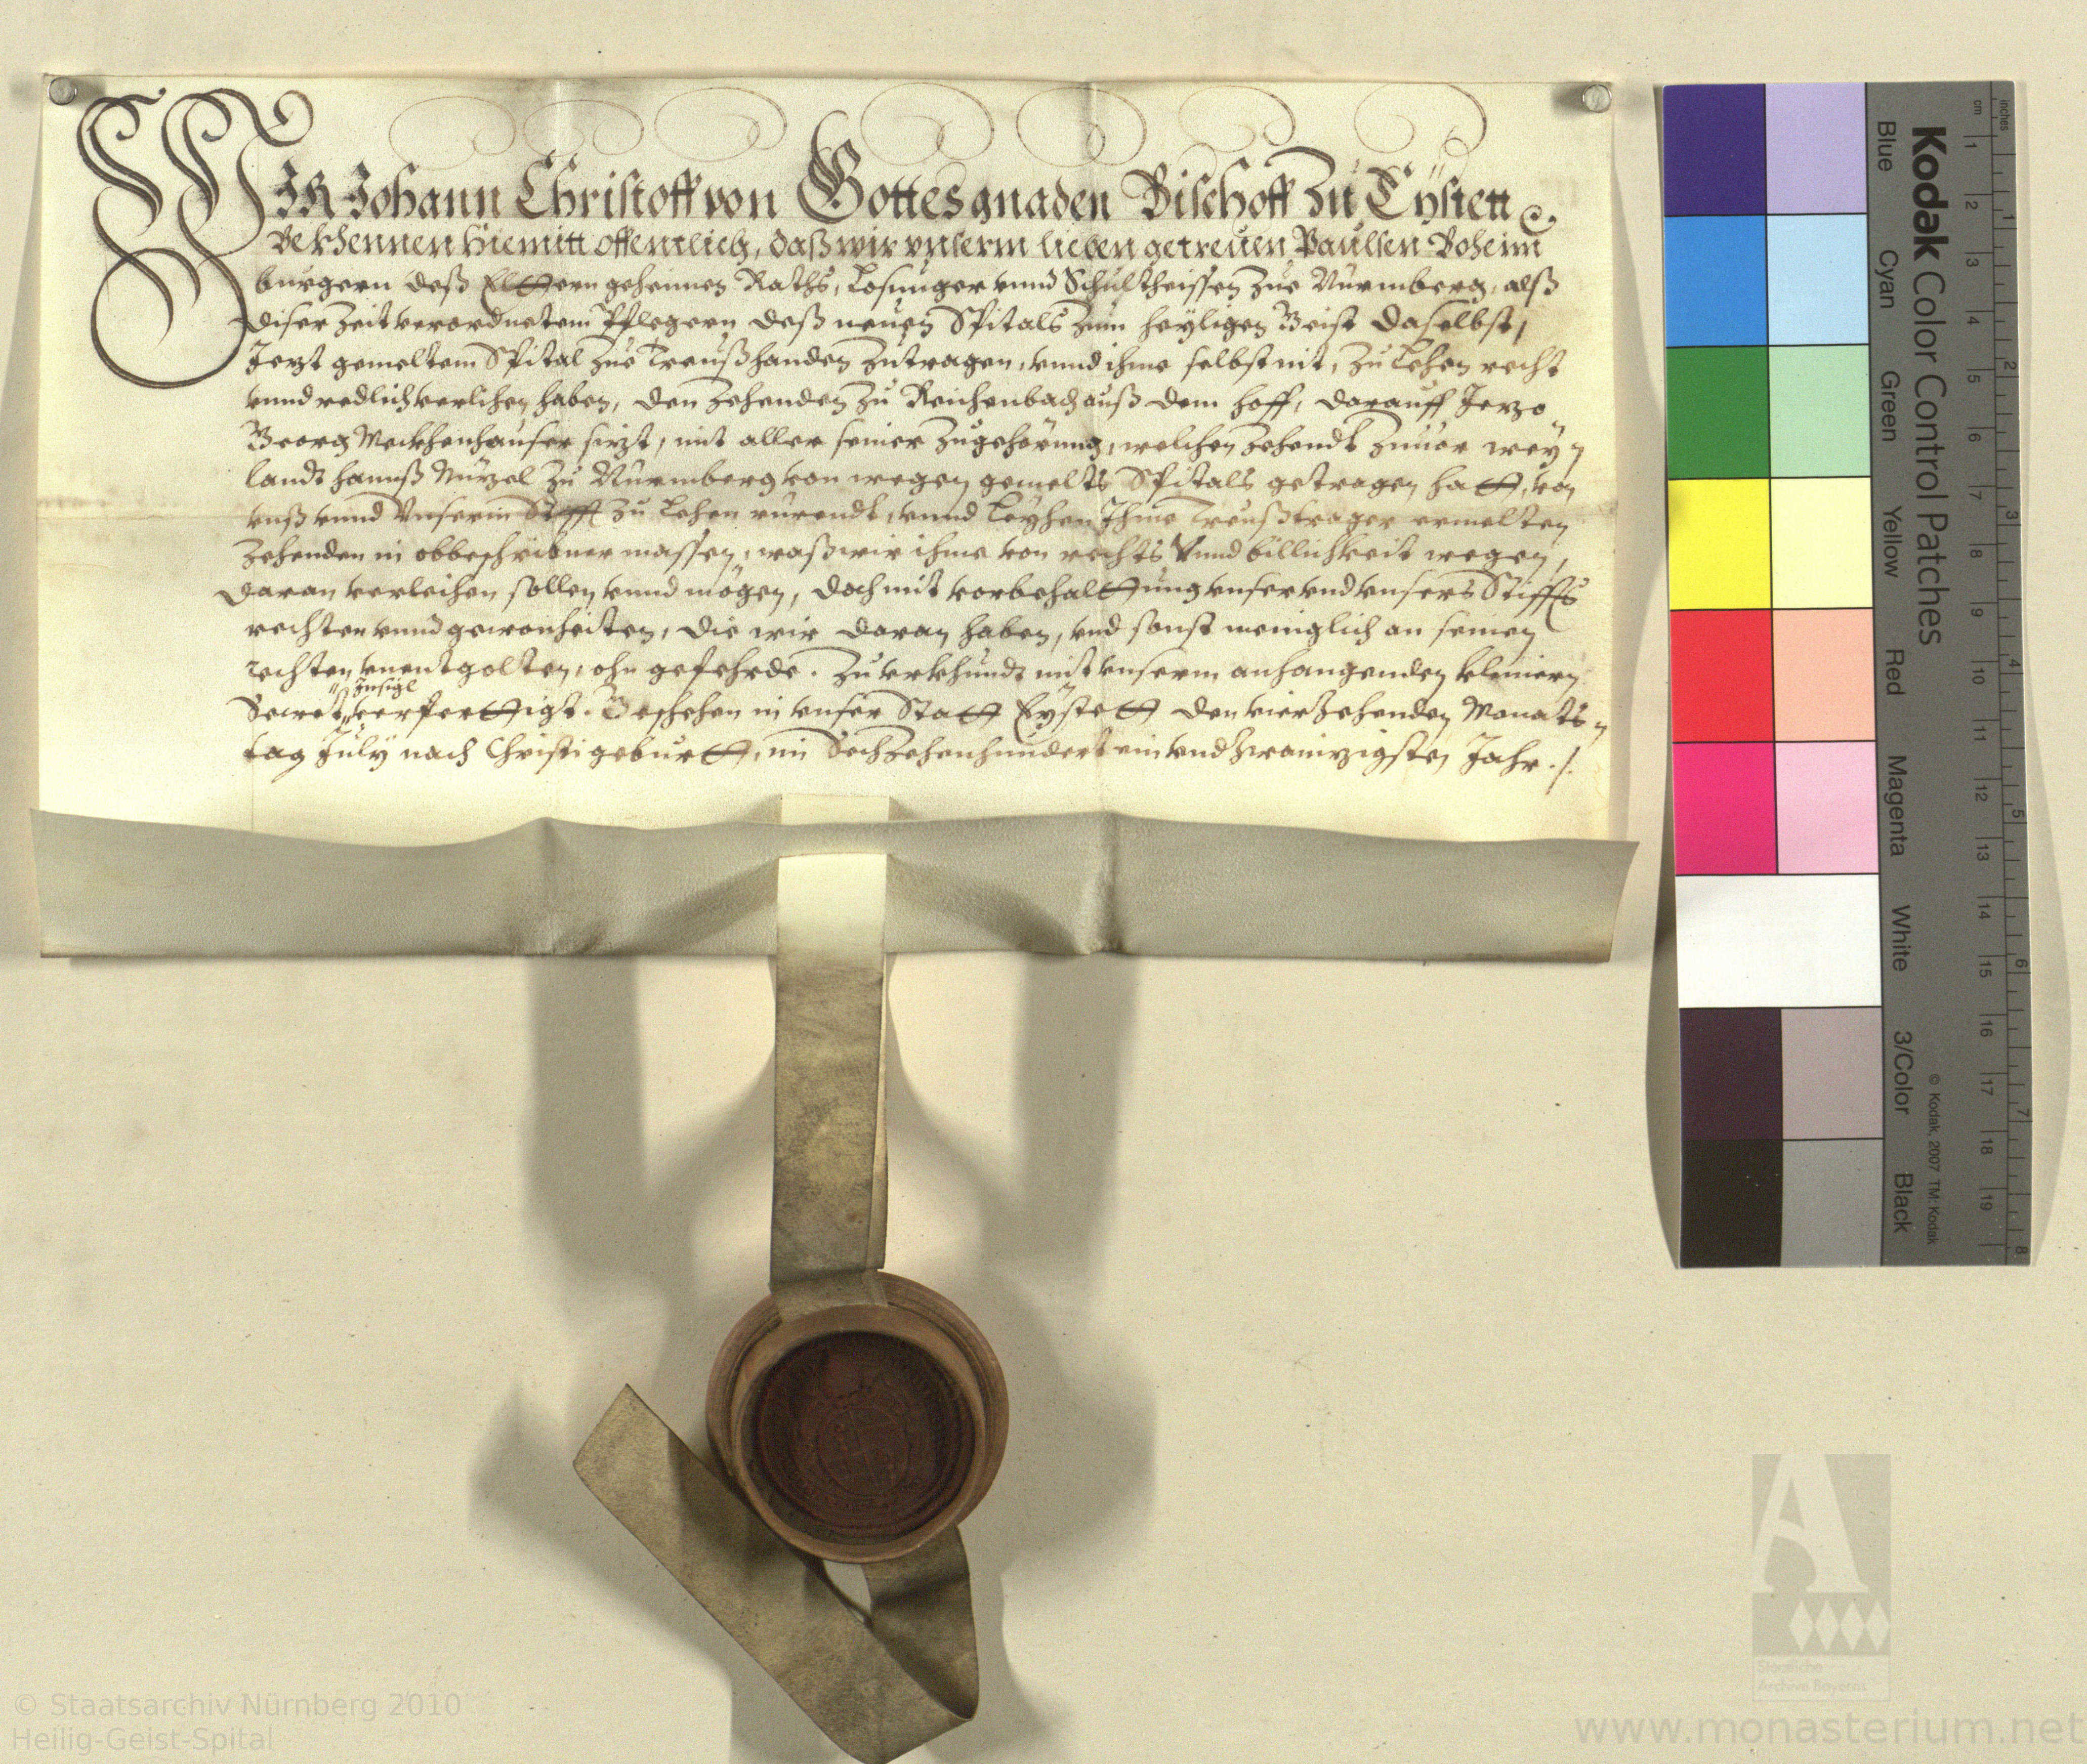 WIR Johann Christoff von Gottes gnaden Bischoff zu Eÿstett
Bekhennen hiemitt offentlich, daß wir vnserm lieben getreuen Paulsen Boheim
burgern deß Elttern geheimen Raths, Losunger vnnd Schultheissen zue Nürmberg, alß
diser Zeit verordnetem Pflegern deß neuen Spitals zum heyligen Geist daselbst,
Jezt gemeltem Spital zue Treußhanden zutragen, vnnd ihme selbst nit, zu Lehen recht
vnnd redlich verlihen haben, den Zehenden zu Reichenbach auß dem hoff, darauff Jezo
Georg Meckhenhauser sizt, mit aller seiner Zugehörung, welchen Zehendt zuuor wey„
landt hannß Nüzel zu Nürmberg von wegen gemelts Spitals getragen hatt, von
vnß vnnd Vnserm Stifft zu Lehen rürendt, vnnd Leyhen Ihme Treußtrager ermelten
Zehenden in obbeschribner massen, waß wir ihme von rechts Vnnd billichkeit wegen,
daran verleihen sollen vnnd mögen, doch mit vorbehalttung vnser vnd vnsers Stiffts
rechten vnnd gewonheiten, die wir daran haben, vnd sonst meniglich an seinen
rechten vnentgolten, ohn gefehrde. Zu vrkhundt mit vnserm anhangenden kleinern
Insigl
Secret verferttigt. Geschehen in vnser Statt Eystett den vierzehenden Monats„
tag July nach Christi geburtt, im Sechzehenhundert ein vnd zwainzigsten Jahr ./.
Kodak Color Control Patches
Blue Cyan Green Yellow Red Magenta White 3/Color Black
© Kodak, 2007 TM: Kodak
cm 1 2 3 4 5 6 7 8 9 10 11 12 13 14 15 16 17 18 19
inches 1 2 3 4 5 6 7 8
Staatliche
Archive Bayerns
© Staatsarchiv Nürnberg 2010
Heilig-Geist-Spital
www.monasterium.net